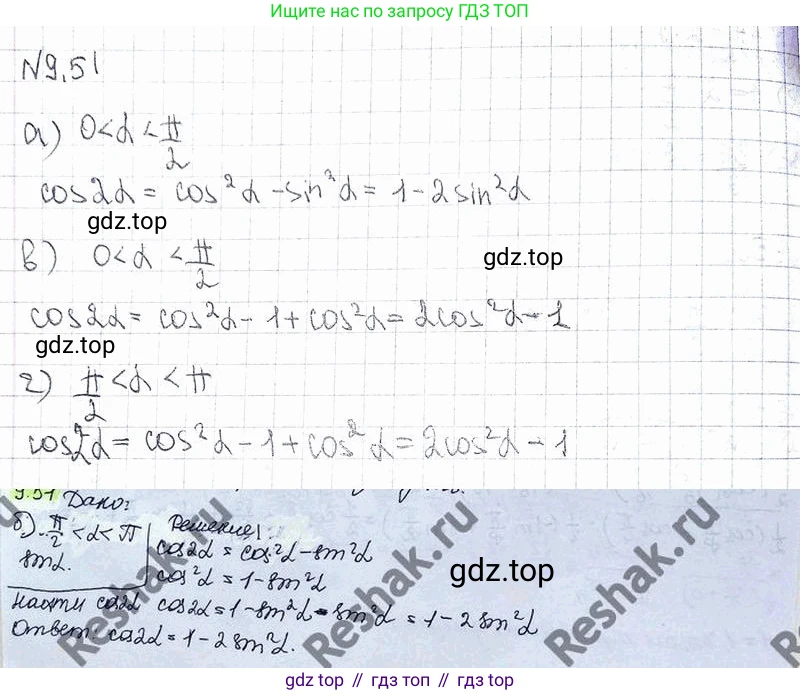 Ищите нас по запросу ГДЗ ТОП
N9.51
а) 0<α<π/2
cos2α = cos²α - sin²α = 1 - 2sin²α
gdz.top
в) 0<α<π/2
gdz.top
cos2α = cos²α - 1 + cos²α = 2cos²α - 1
gdz.top
г) π/2<α<π
cos2α = cos²α - 1 + cos²α = 2cos²α - 1
9.51 Дано:
б) π/2<α<π
sinα.
Решение:
cos2α = cos²α - sin²α
cos²α = 1 - sin²α
gdz.top
Найти cos2α
cos2α = 1 - sin²α - sin²α = 1 - 2sin²α
Ответ: cos2α = 1 - 2sin²α.
Reshak.ru
Reshak.ru
Reshak.ru
gdz top // гдз топ // гдз.топ